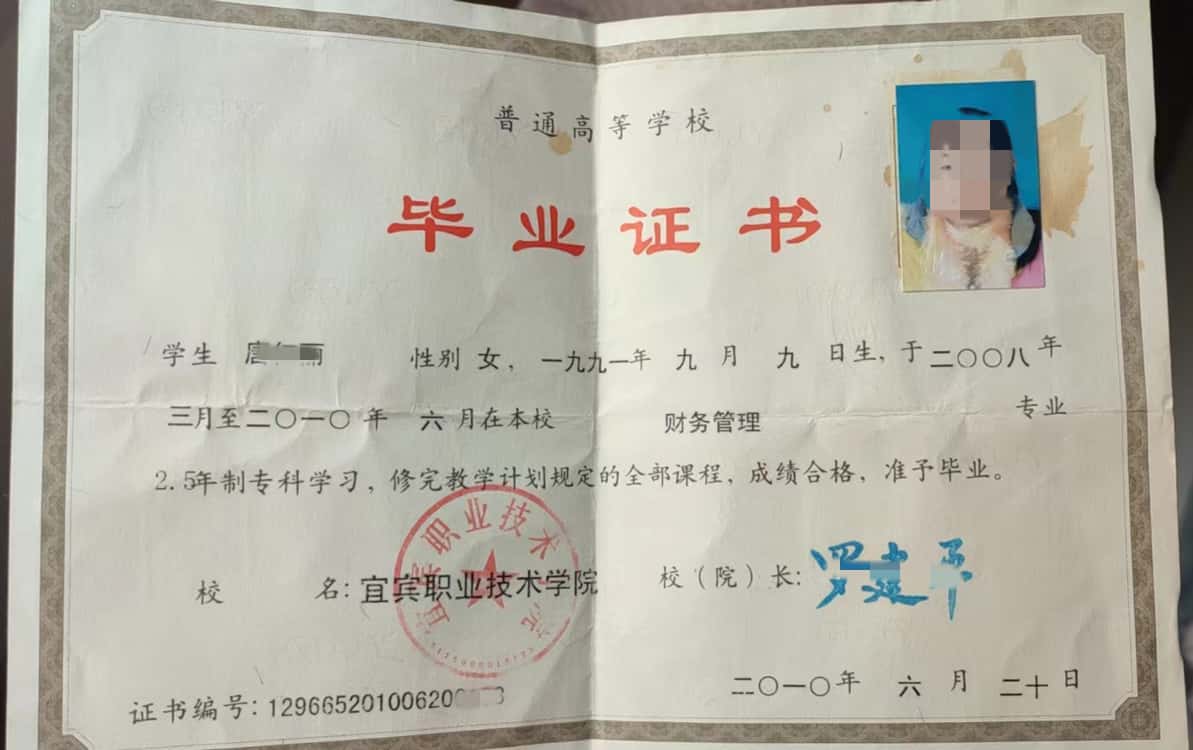 普通高等学校
毕业证书
学生 唐 丽 性别 女，一九九一年 九 月 九 日生，于二〇〇八年
三月至二〇一〇年 六 月在本校 财务管理 专业
2.5年制专科学习，修完教学计划规定的全部课程，成绩合格，准予毕业。
宜宾职业技术学院
校 名：宜宾职业技术学院 校（院）长：
证书编号：12966520100620
二〇一〇年 六 月 二十日